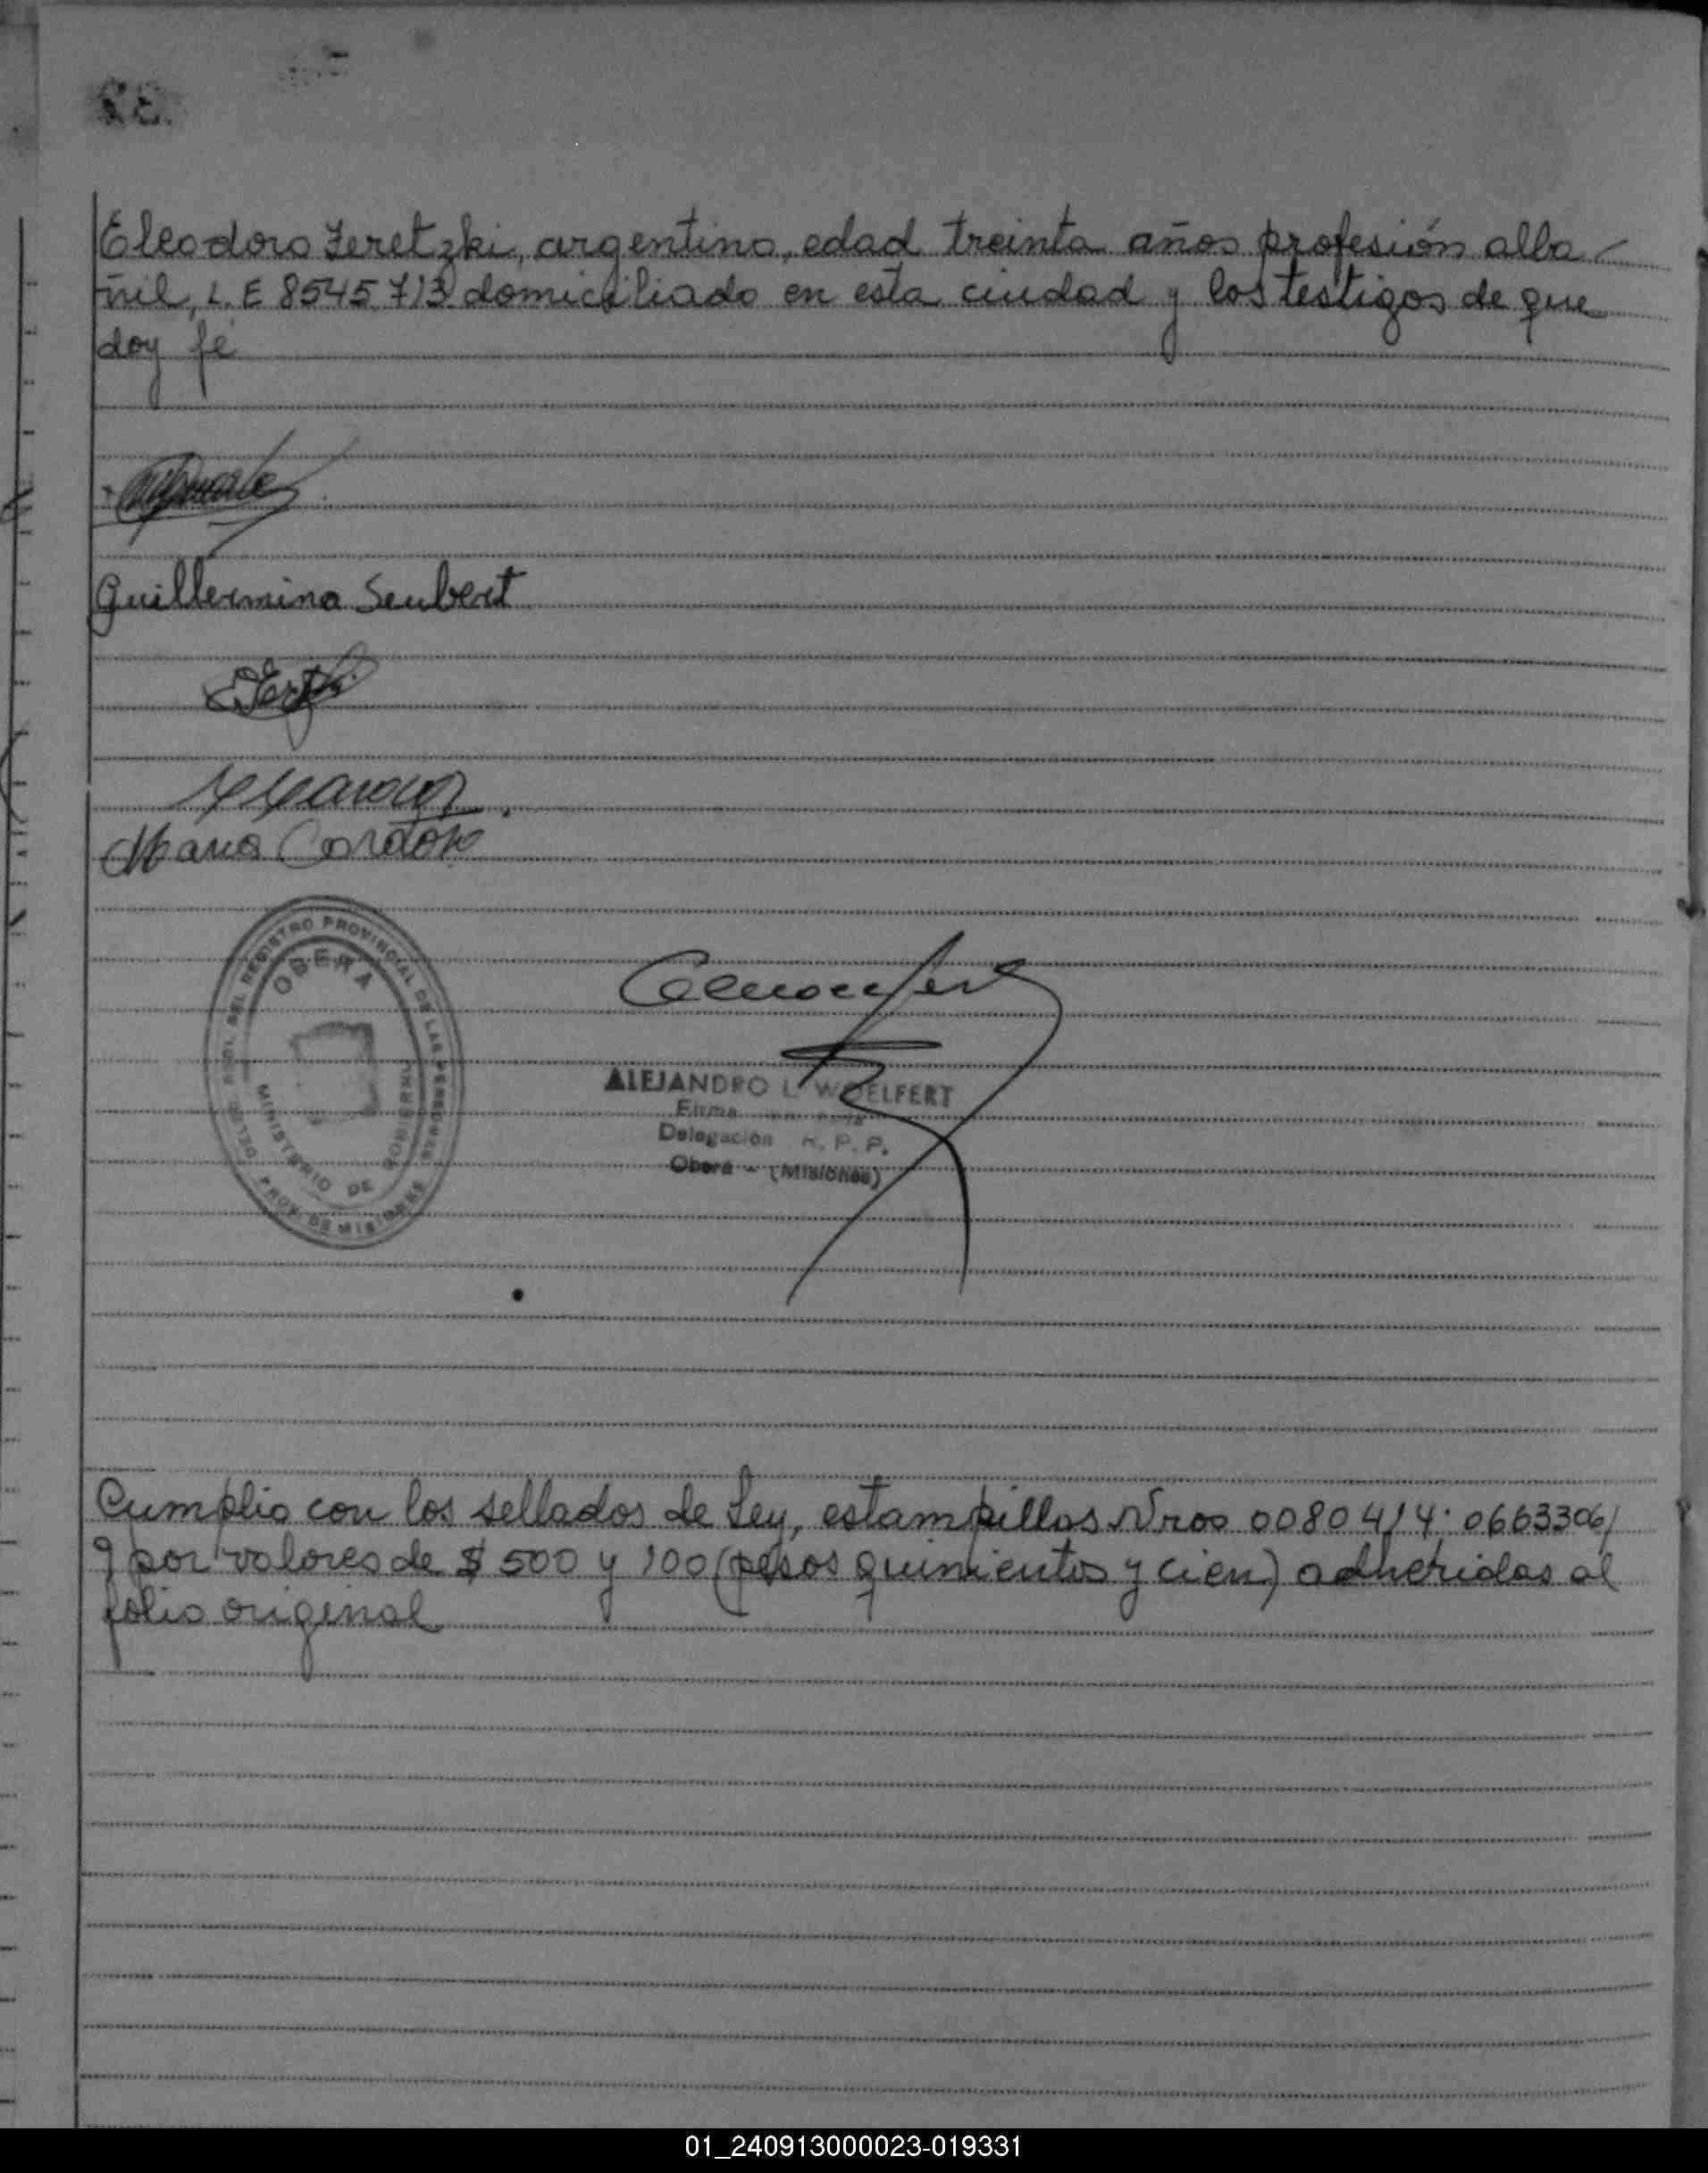 Eleodoro Feretzki, argentino, edad treinta años profesión alba-
ñil, L. E 8545.713 domiciliado en esta ciudad y los testigos de que
doy fé
Guillermina Seubert
Maria Cardozo
DELEG. PCIAL. DEL REGISTRO PROVINCIAL DE LAS PERSONAS
OBERA
MINISTERIO DE GOBIERNO
PROV. DE MISIONES
ALEJANDRO L. WOELFERT
Firma
Delegación R. P. P.
Oberá - (Misiones)
Cumplio con los sellados de Ley, estampillas Nros 0080414. 0663306/
9 por valores de $ 500 y 100 (pesos quinientos y cien) adheridas al
folio original
01_240913000023-019331